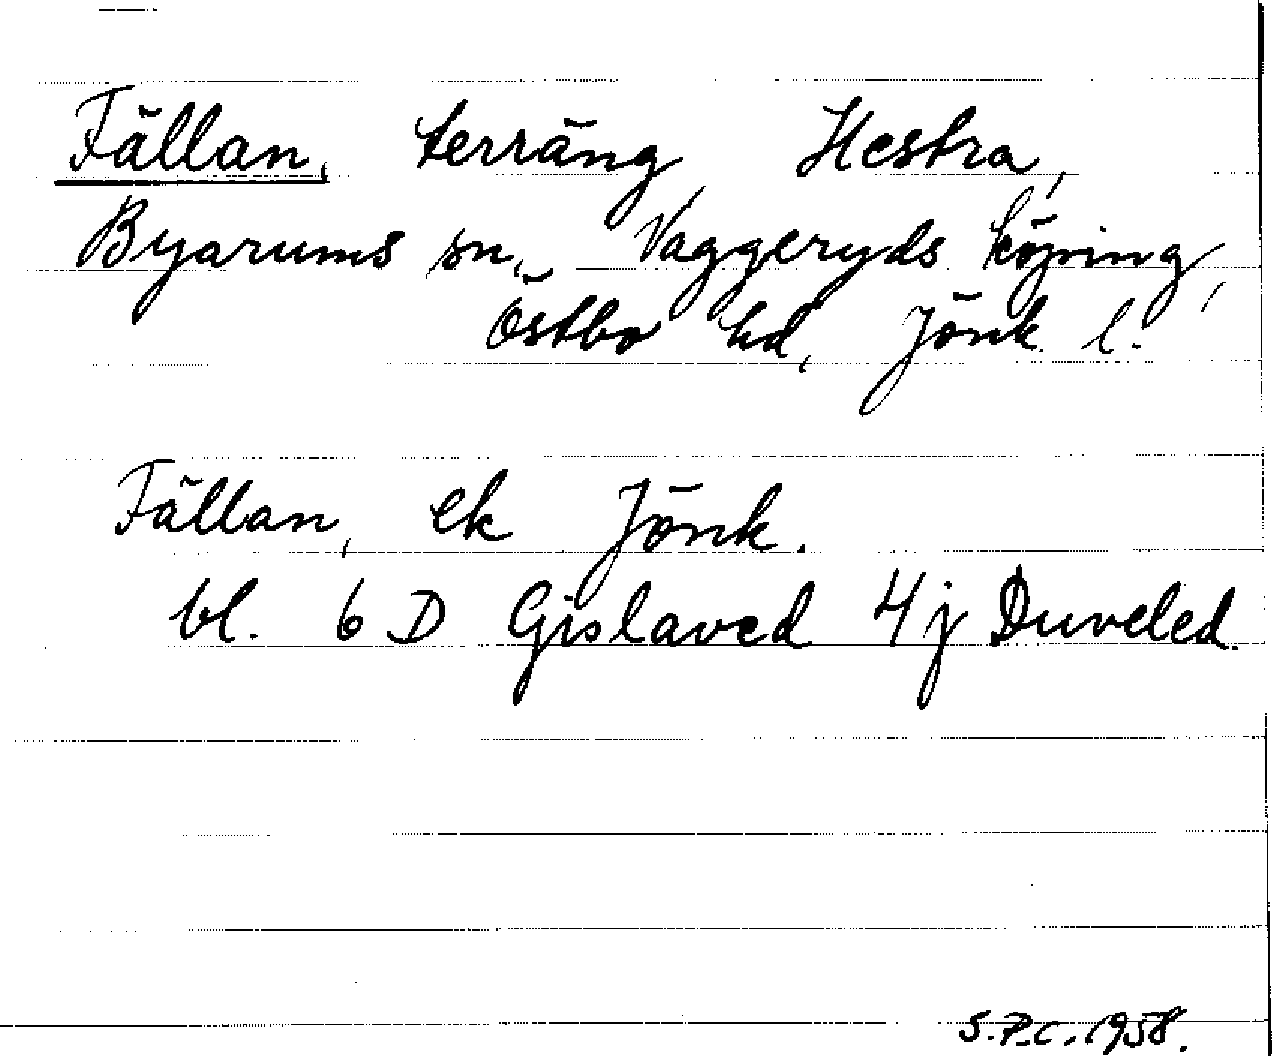 Fällan, terräng, Hestra,
Byarums sn, Vaggeryds köping,
Östbo hd, Jönk. l.
Fällan, ek Jönk.
bl. 6 D Gislaved 4 j Duveled.
S.P.C. 1958.